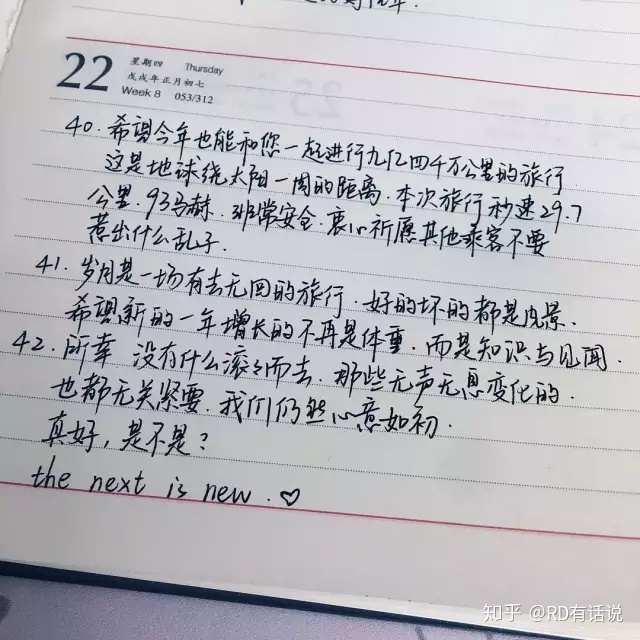 22
星期四 Thursday
戊戌年正月初七
Week 8 053/312
40. 希望今年也能和您一起进行九亿四千万公里的旅行
这是地球绕太阳一周的距离. 本次旅行秒速29.7
公里. 93马赫. 非常安全. 衷心祈愿其他乘客不要
惹出什么乱子.
41. 岁月是一场有去无回的旅行. 好的坏的都是风景.
希望新的一年增长的不再是体重. 而是知识与见闻.
42. 所幸 没有什么滚滚而去. 那些无声无息变化的.
也都无关紧要. 我们仍然心意如初.
真好, 是不是?
the next is new. ♡
知乎 @RD有话说